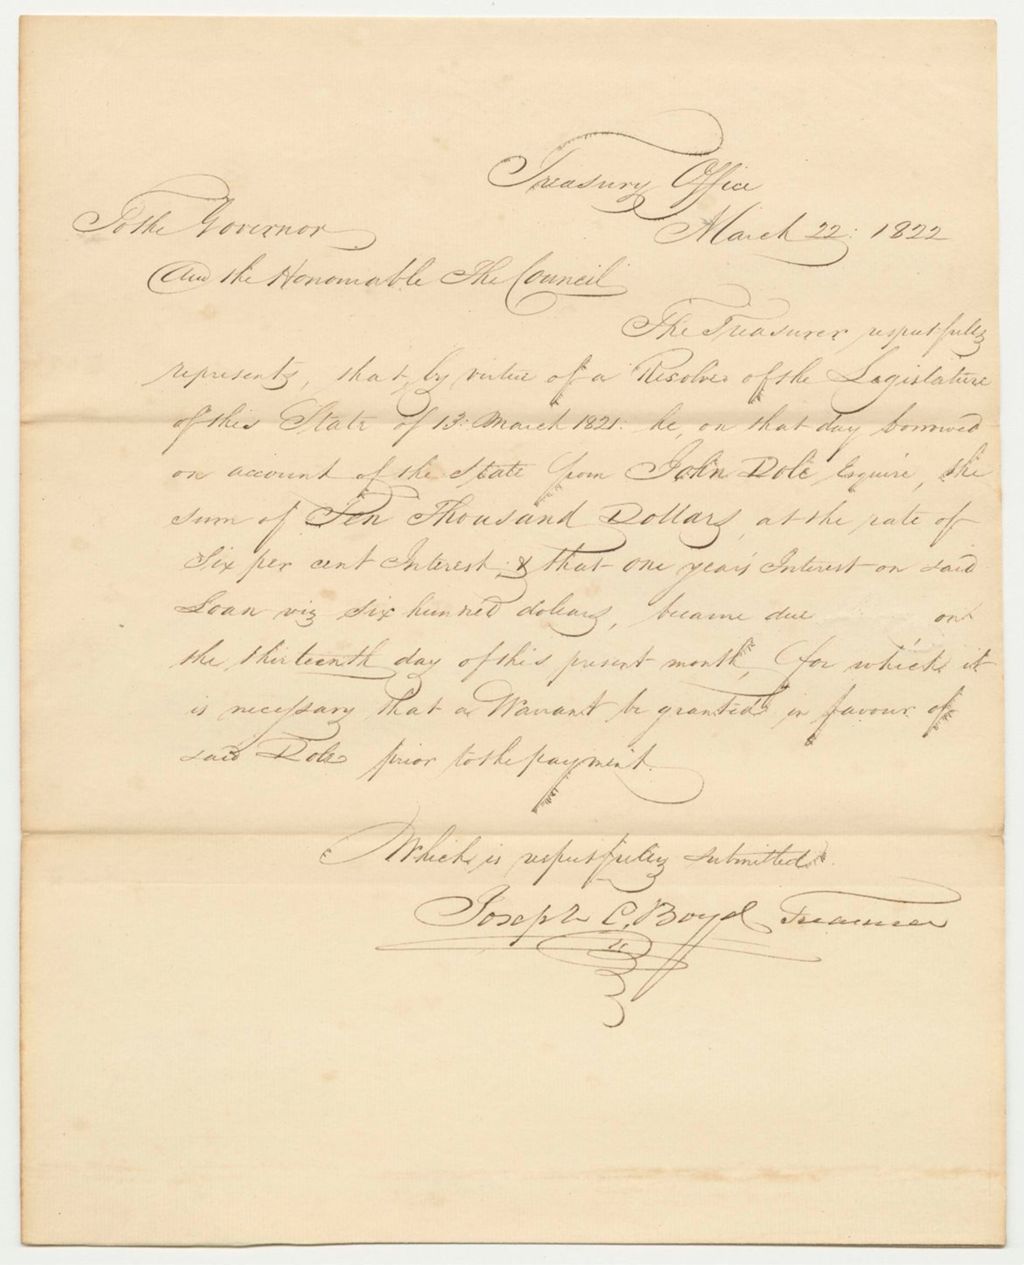 Treasury Office
March 22: 1822
To the Governor
And the Honourable The Council
The Treasurer respectfully
represents, that, by virtue of a Resolve of the Legislature
of this State of 13: March 1821: he, on that day borrowed
on account of the State from John Dole Esquire, the
sum of Ten Thousand Dollars, at the rate of
Six per cent Interest; & that one year's Interest on said
Loan viz Six hunned dollars, became due on
the thirteenth day of this present month, for which it
is necessary that a Warrant be granted in favour of
said Dole prior to the payment.
Which is respectfully submitted.
Joseph C. Boyd Treasurer